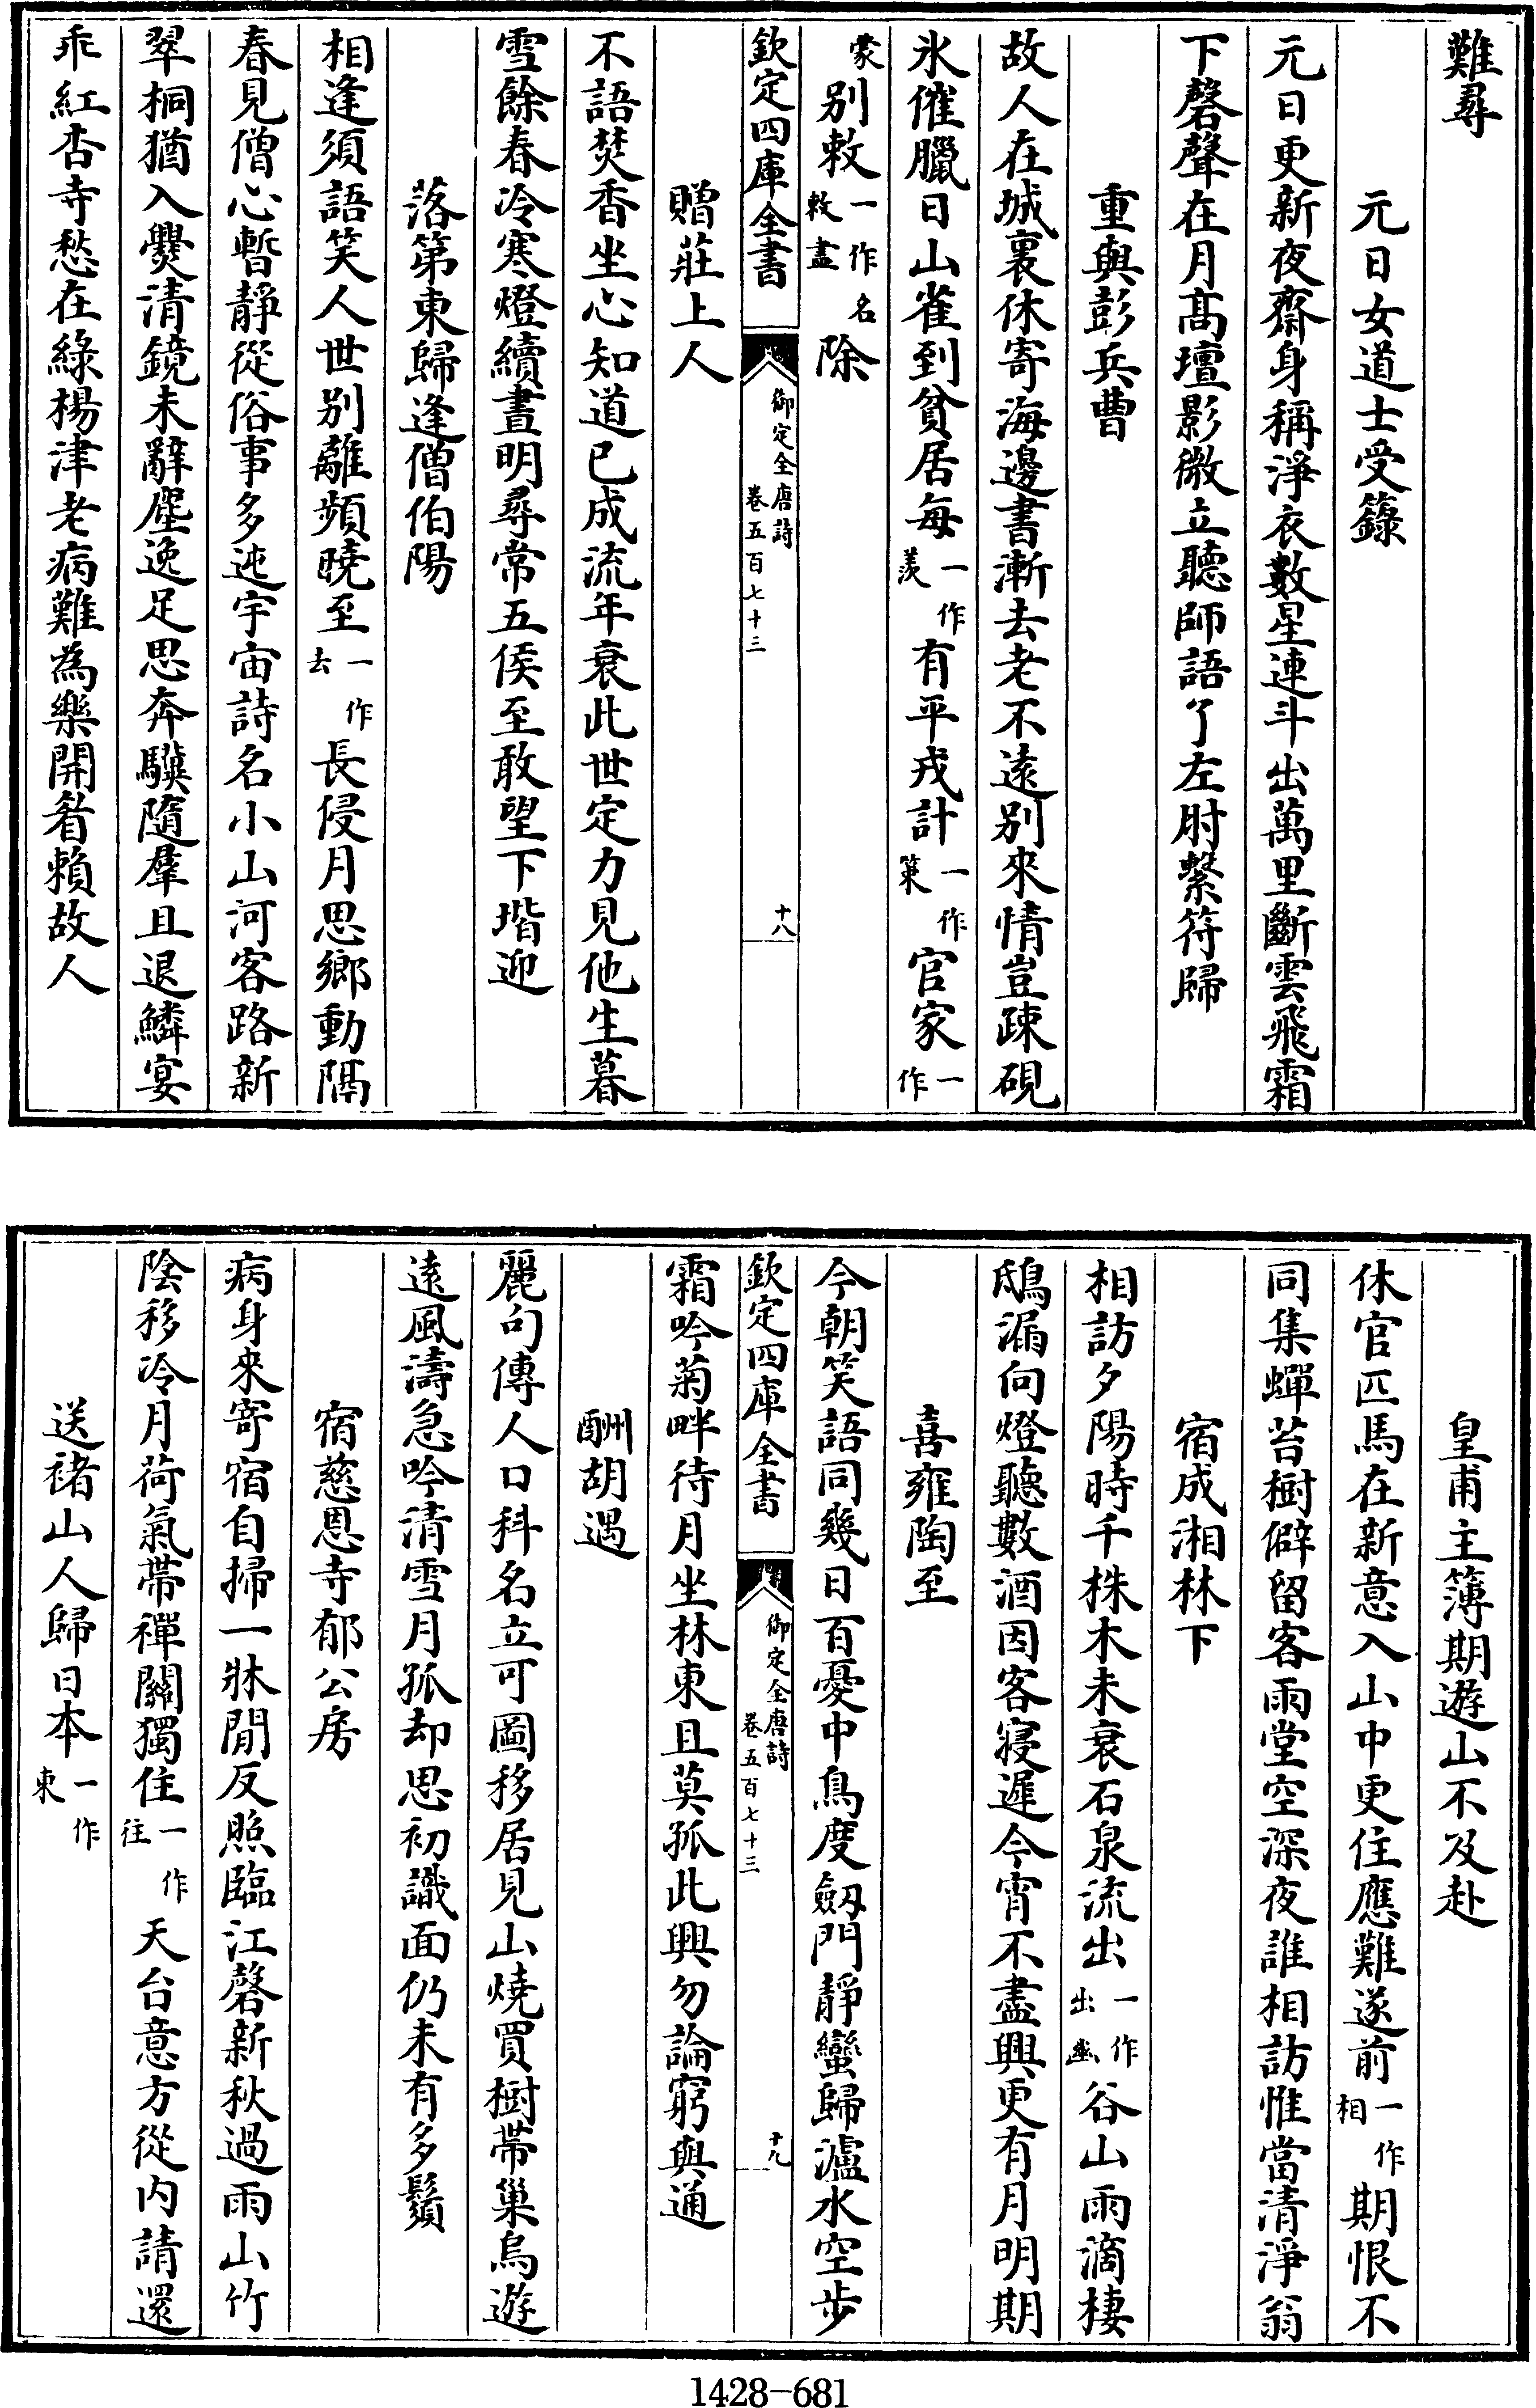 難尋
元日女道士受籙
元日更新夜齋身稱淨衣數星連斗出萬里斷雲飛霜
下磬聲在月髙壇影微立聽師語了左肘繫符歸
重與彭兵曹
故人在城裏休寄海邊書漸去老不遠别來情豈疎硯
氷催臘日山雀到貧居每一作羨有平戎計一作策官家一作
蒙别敕一作名敕盡除
欽定四庫全書
御定全唐詩
卷五百七十三
十八
贈莊上人
不語焚香坐心知道已成流年衰此世定力見他生暮
雪餘春冷寒燈續晝明尋常五侯至敢望下堦迎
落第東歸逢僧伯陽
相逢須語笑人世别離頻曉至一作去長侵月思鄉動隔
春見僧心暫靜從俗事多迍宇宙詩名小山河客路新
翠桐猶入爨清鏡未辭塵逸足思奔驥隨羣且退鱗宴
乖紅杏寺愁在綠楊津老病難為樂開眉賴故人
皇甫主簿期遊山不及赴
休官匹馬在新意入山中更住應難遂前一作相期恨不
同集蟬苔樹僻留客雨堂空深夜誰相訪惟當清淨翁
宿成湘林下
相訪夕陽時千株木未衰石泉流出一作出幽谷山雨滴棲
鴟漏向燈聽數酒因客寢遲今宵不盡興更有月明期
喜雍陶至
今朝笑語同幾日百憂中鳥度劔門靜蠻歸瀘水空步
欽定四庫全書
御定全唐詩
卷五百七十三
十九
霜吟菊畔待月坐林東且莫孤此興勿論窮與通
酬胡遇
麗句傳人口科名立可圖移居見山燒買樹帶巢烏遊
遠風濤急吟清雪月孤却思初識面仍未有多鬚
宿慈恩寺郁公房
病身來寄宿自掃一牀閒反照臨江磬新秋過雨山竹
陰移冷月荷氣帶禪關獨住一作往天台意方從内請還
送褚山人歸日本一作東
1428-681